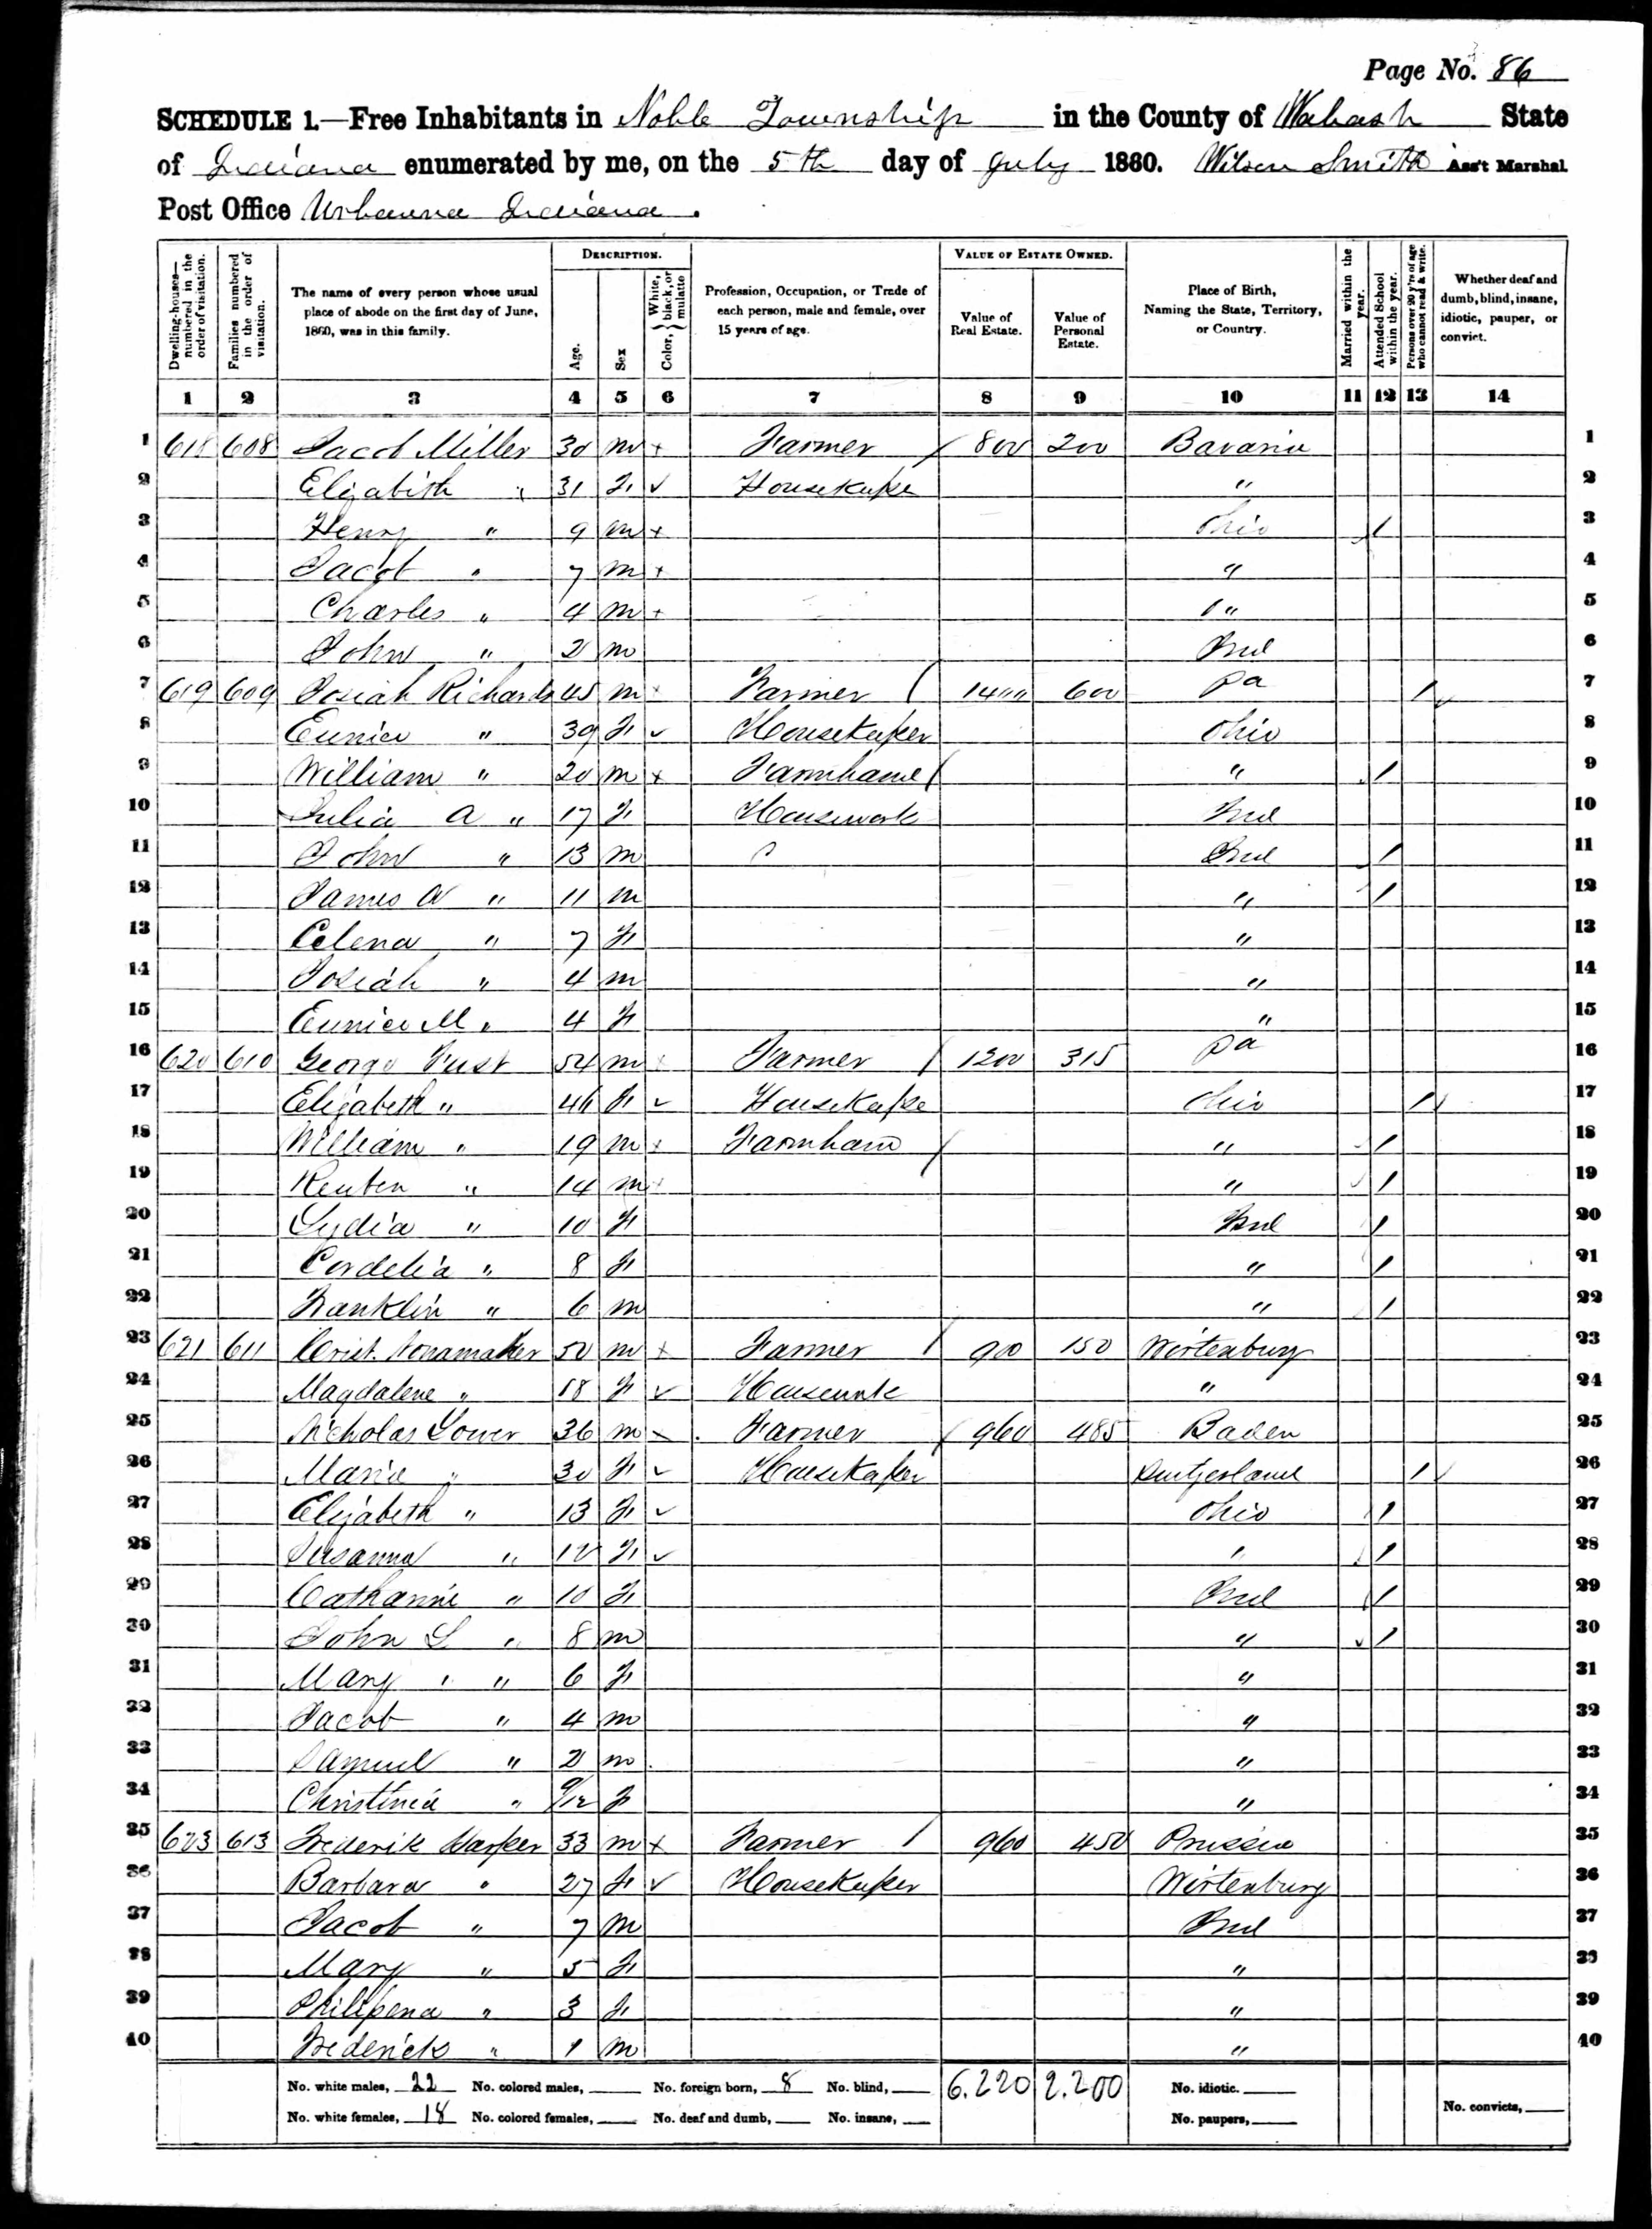 Page No. 86
SCHEDULE 1.—Free Inhabitants in Noble Township in the County of Wabash State
of Indiana enumerated by me, on the 5th day of July 1860. Wilson Smith Ass't Marshal
Post Office Urbanna Indiana.
DESCRIPTION. VALUE OF ESTATE OWNED.
Dwelling-houses—numbered in the order of visitation. Families numbered in the order of visitation. The name of every person whose usual place of abode on the first day of June, 1860, was in this family. Age. Sex Color, { White, black, or mulatto Profession, Occupation, or Trade of each person, male and female, over 15 years of age. Value of Real Estate. Value of Personal Estate. Place of Birth, Naming the State, Territory, or Country. Married within the year. Attended School within the year. Persons over 20 y'rs of age who cannot read & write. Whether deaf and dumb, blind, insane, idiotic, pauper, or convict.
1 2 3 4 5 6 7 8 9 10 11 12 13 14
1 618 608 Jacob Miller 30 m + Farmer / 800 200 Bavaria 1
2 Elizabith " 31 F ✓ Housekepe " 2
3 Henry " 9 m + Ohio / 3
4 Jacob " 7 m + " 4
5 Charles " 4 m + " 5
6 John " 2 m Ind 6
7 619 609 Josiah Richards 45 m + Farmer ( 1400 600 Pa / 7
8 Eunice " 39 F ✓ Housekeeper Ohio 8
9 William " 20 m + Farmhand / " / 9
10 Julia A " 17 F Housework Ind 10
11 John " 13 m Ind / 11
12 James " 11 m " / 12
13 Celena " 7 F " 13
14 Josiah " 4 m " 14
15 Eunice M " 4 F " 15
16 620 610 George Fust 54 m + Farmer / 1200 315 Pa 16
17 Elizabeth " 46 F ✓ Housekeepe Ohio / 17
18 William " 19 m + Farmhand / " / 18
19 Reuben " 14 m + " / 19
20 Lydia " 10 F Ind / 20
21 Cordelia " 8 F " / 21
22 Franklin " 6 m " / 22
23 621 611 Crist. Conamaker 50 m + Farmer / 900 150 Wirtenburg 23
24 Magdalene " 18 F ✓ Housework " 24
25 Nicholas Lower 36 m Farmer / 960 485 Baden 25
26 Maria " 30 F ✓ Housekeeper Switzerland / 26
27 Elizabeth " 13 F ✓ Ohio / 27
28 Susanna " 12 F ✓ " / 28
29 Catharine " 10 F Ind / 29
30 John L " 8 m " / 30
31 Mary " " 6 F " 31
32 Jacob " 4 m " 32
33 Samuel " 2 m " 33
34 Christinia " 9/12 F " 34
35 623 613 Frederik Harper 33 m + Farmer / 960 450 Prussia 35
36 Barbara " 27 F ✓ Housekeeper Wirtenburg 36
37 Jacob " 7 m Ind 37
38 Mary " 5 F " 38
39 Philipena " 3 F " 39
40 Frederick " 1 m " 40
No. white males, 22 No. colored males, No. foreign born, 8 No. blind, 6.220 2.200 No. idiotic.
No. white females, 18 No. colored females, No. deaf and dumb, No. insane, No. paupers, No. convicts,